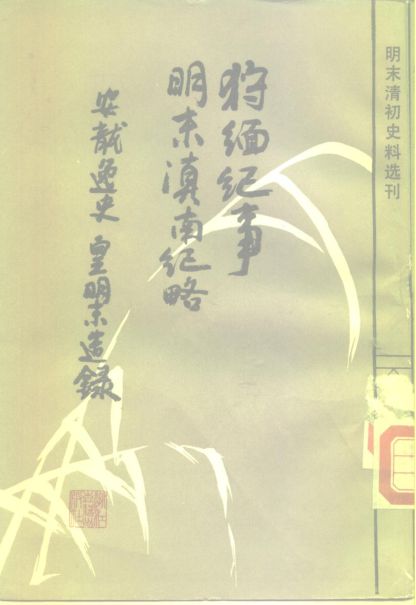 狩缅纪事
明末滇南纪略
安龙逸史 皇明末造録
明末清初史料选刊